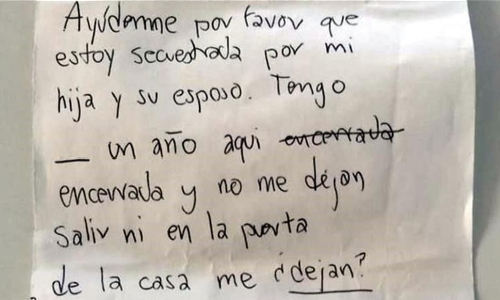 Ayúdenme por favor que
estoy secuestrada por mi
hija y su esposo. Tengo
__ un año aqui encerrada
encerrada y no me dejan
Salir ni en la puerta
de la casa me ¿dejan?